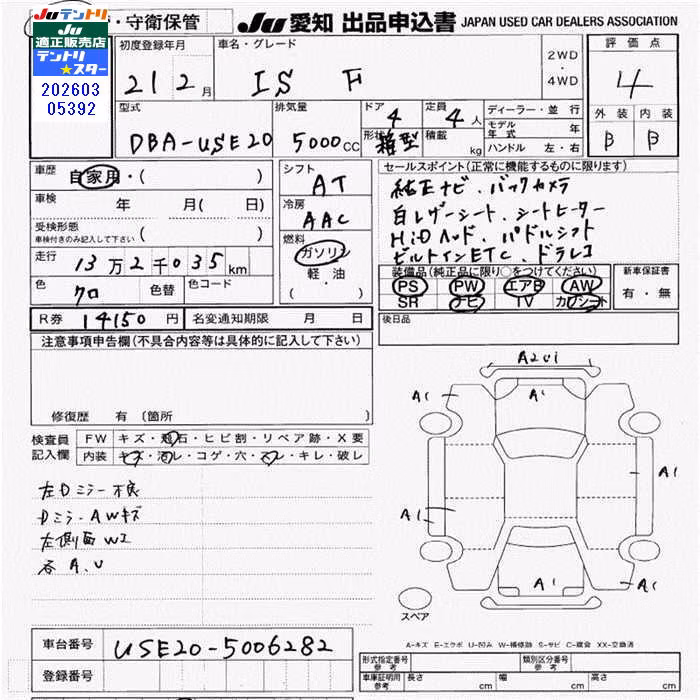 Juテントリ
Ju
適正販売店
テントリ
★スター
202603
05392
・守衛保管
Ju 愛知 出品申込書 JAPAN USED CAR DEALERS ASSOCIATION
初度登録年月
21 2月
車名・グレード
IS F
2WD
・
4WD
評価点
4
外装 内装
B B
型式
DBA-USE20
排気量
5000cc
ドア
4
定員
4人
形状
箱型
積載
kg
ディーラー・並行
モデル年式 年
ハンドル 左・右
車歴
自家用・( )
車検
年 月( 日)
受検形態
車検付きのみ記入して下さい ( )
走行
13万2千035km
色
クロ
色替
色コード
シフト
AT
冷房
AAC
燃料
ガソリン
軽・油
( )
セールスポイント(正常に機能するものに限ります)
純正ナビ、バックカメラ
白レザーシート、シートヒーター
HiDヘッド、パドルシフト
ビルトインETC、ドラレコ
装備品(純正品に限り○をつけてください)
PS PW エアB AW
SR ナビ TV カワシート
新車保証書
有・無
R券 14150円 名変通知期限 月 日
後日品
注意事項申告欄(不具合内容等は具体的に記入して下さい)
修復歴 有 〔箇所 〕
検査員
記入欄
FW キズ・飛石・ヒビ割・リペア跡・X要
内装 キズ・汚レ・コゲ・穴・スレ・キレ・破レ
左Dミラー不良
Dミラ、AWキズ
左側面W2
各A、U
A2U1
A1
A1
A1
A1
A1
A1
A1
スペア
A-キズ E-エクボ U-凹み W-補修跡 S-サビ C-腐食 XX-交換済
車台番号 USE20-5006282
登録番号
形式指定番号
参考
類別区分番号
参考
車庫証明用
参考
長さ cm 幅 cm 高さ cm